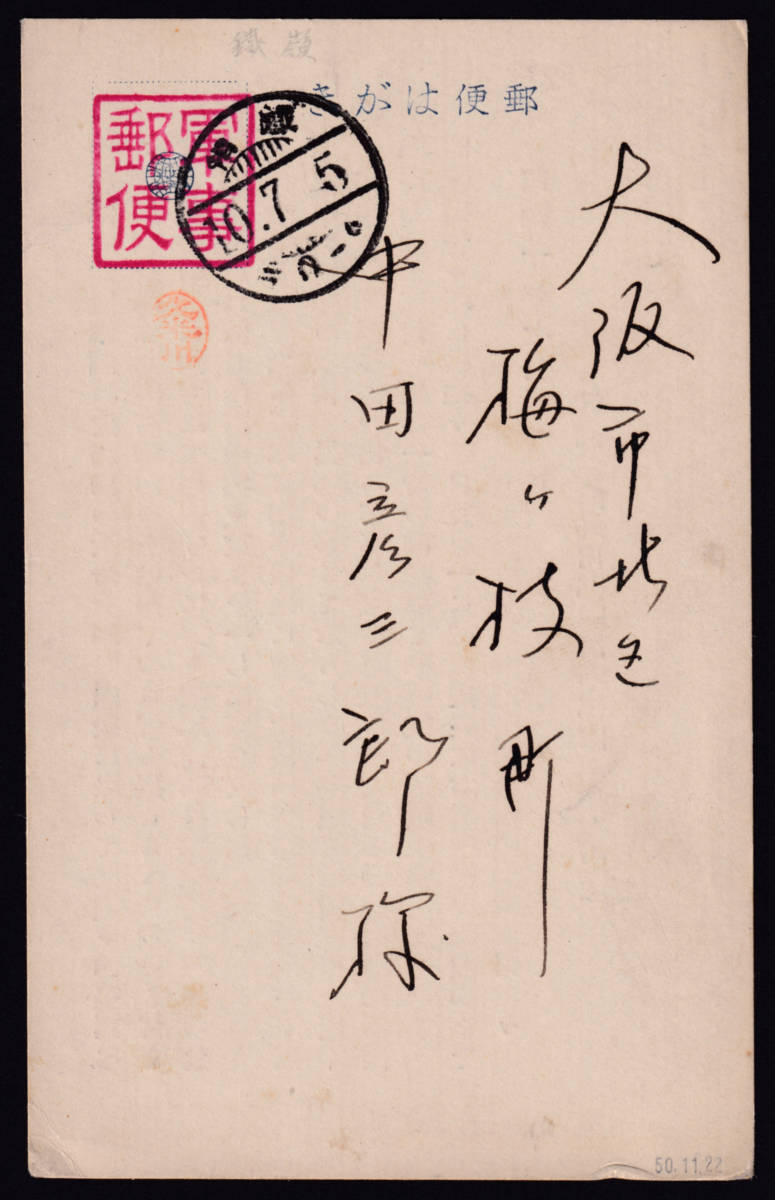 鐵嶺
郵便はがき
軍事
郵便
10.7.5
大阪市北区
梅ヶ枝町
中田彦三郎様
50.11.22